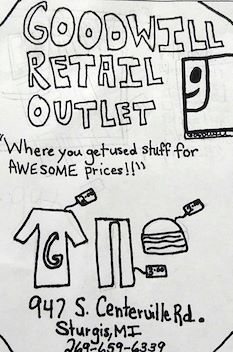 GOODWILL
RETAIL
OUTLET
"Where you get used stuff for
AWESOME prices!!"
G
947 S. Centerville Rd.
Sturgis, MI
269-659-6339